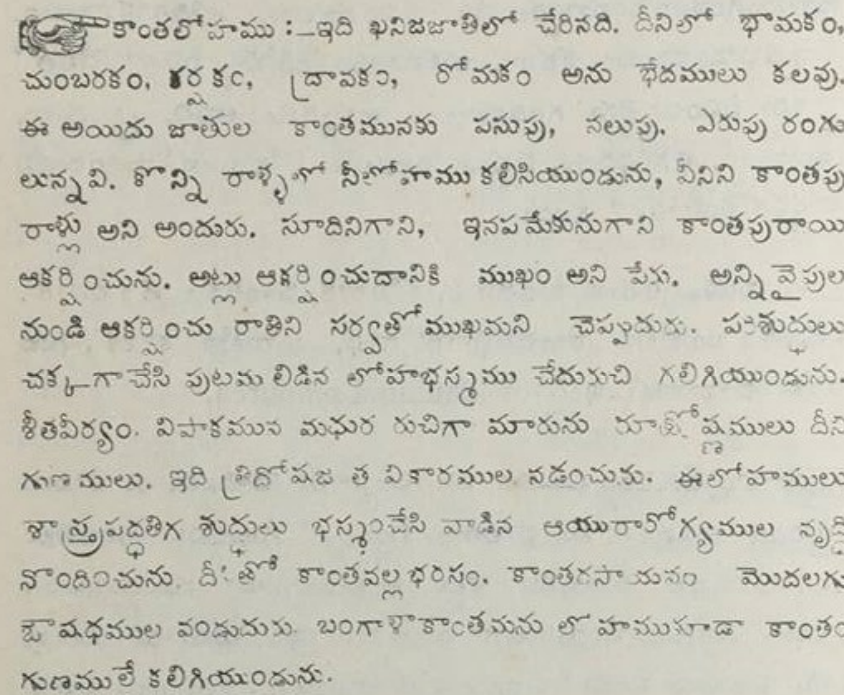 కాంతలోహము :_ఇది ఖనిజజాతిలో చేరినది. దీనిలో భామకం,
చుంబరకం, కర్షకం, ద్రావకం, రోమకం అను భేదములు కలవు.
ఈ అయిదు జాతుల కాంతమునకు పసుపు, నలుపు. ఎరుపు రంగు
లున్నవి. కొన్ని రాళ్ళలో సీలోహము కలిసియుండును, వీనిని కాంతపు
రాళ్లు అని అందురు. సూదినిగాని, ఇనపమేకునుగాని కాంతపురాయి
ఆకర్షించును. అట్లు ఆకర్షించుదానికి ముఖం అని పేరు. అన్ని వైపుల
నుండి ఆకర్షించు రాతిని సర్వతోముఖమని చెప్పుదురు. పరిశుద్ధులు
చక్కగా చేసి పుటమ లిడిన లోహభస్మము చేదురుచి గలిగియుండును.
శీతవీర్యం. విపాకమున మధుర రుచిగా మారును రూక్షోష్ణములు దీని
గుణములు. ఇది త్రిదోషజ త వికారముల నడంచును. ఈలోహములు
శాస్త్రపద్ధతిగ శుద్ధులు భస్మంచేసి వాడిన ఆయురారోగ్యముల నృద్ధి
నొందించును. దీనితో కాంతవల్లభరసం. కాంతరసాయనం మొదలగు
ఔషధముల వండుదురు. బంగాళాకాంతమను లోహముకూడా కాంతం
గుణములే కలిగియుండును.